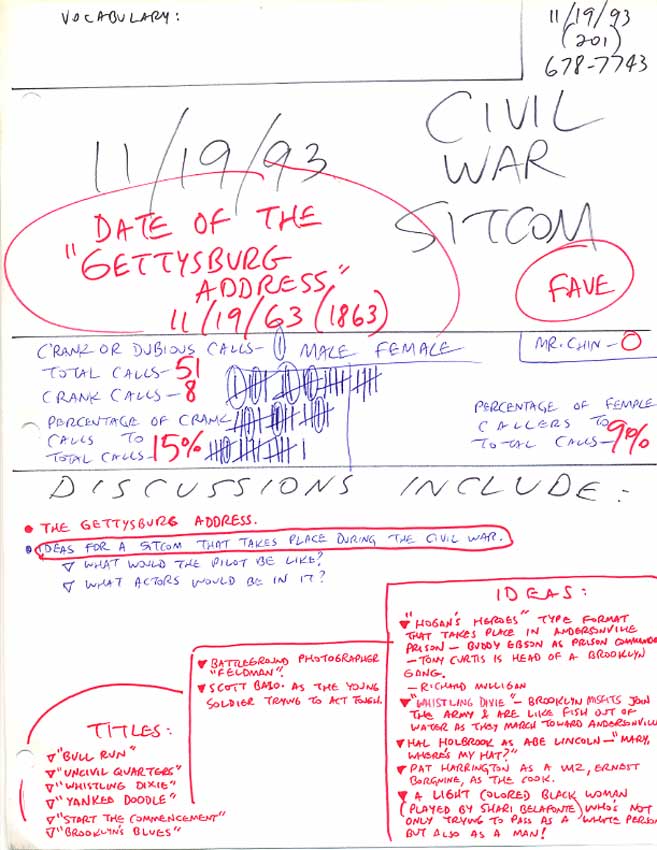 VOCABULARY:
11/19/93
(201)
678-7743
11/19/93
CIVIL
WAR
SITCOM
DATE OF THE
"GETTYSBURG
ADDRESS"
11/19/63 (1863)
FAVE
CRANK OR DUBIOUS CALLS- MALE FEMALE
MR. CHIN - 0
TOTAL CALLS - 51
CRANK CALLS - 8
PERCENTAGE OF CRANK
CALLS TO
TOTAL CALLS - 15%
PERCENTAGE OF FEMALE
CALLERS TO
TOTAL CALLS - 9%
DISCUSSIONS INCLUDE:
• THE GETTYSBURG ADDRESS.
• IDEAS FOR A SITCOM THAT TAKES PLACE DURING THE CIVIL WAR.
▽ WHAT WOULD THE PILOT BE LIKE?
▽ WHAT ACTORS WOULD BE IN IT?
TITLES:
▽ "BULL RUN"
▽ "UNCIVIL QUARTERS"
▽ "WHISTLING DIXIE"
▽ "YANKED DOODLE"
▽ "START THE COMMENCEMENT"
▽ "BROOKLYN'S BLUES"
▼ BATTLEGROUND PHOTOGRAPHER
"FELDMAN".
▼ SCOTT BAIO. AS THE YOUNG
SOLDIER TRYING TO ACT TOUGH.
IDEAS:
▼ "HOGAN'S HEROES" TYPE FORMAT
THAT TAKES PLACE IN ANDERSONVILLE
PRISON - BUDDY EBSON AS PRISON
- TONY CURTIS IS HEAD OF A BROOKLYN
GANG.
- RICHARD MULLIGAN
▼ "WHISTLING DIXIE" - BROOKLYN MISFITS JOIN
THE ARMY & ARE LIKE FISH OUT OF
WATER AS THEY MARCH TOWARD ANDERSONVILLE
▼ HAL HOLBROOK AS ABE LINCOLN - "MARY,
WHERE'S MY HAT?"
▼ PAT HARRINGTON AS A ERNEST
BORGNINE, AS THE COOK.
▼ A LIGHT COLORED BLACK WOMAN
(PLAYED BY SHARI BELAFONTE) WHO'S NOT
ONLY TRYING TO PASS AS A WHITE PERSON
BUT ALSO AS A MAN!